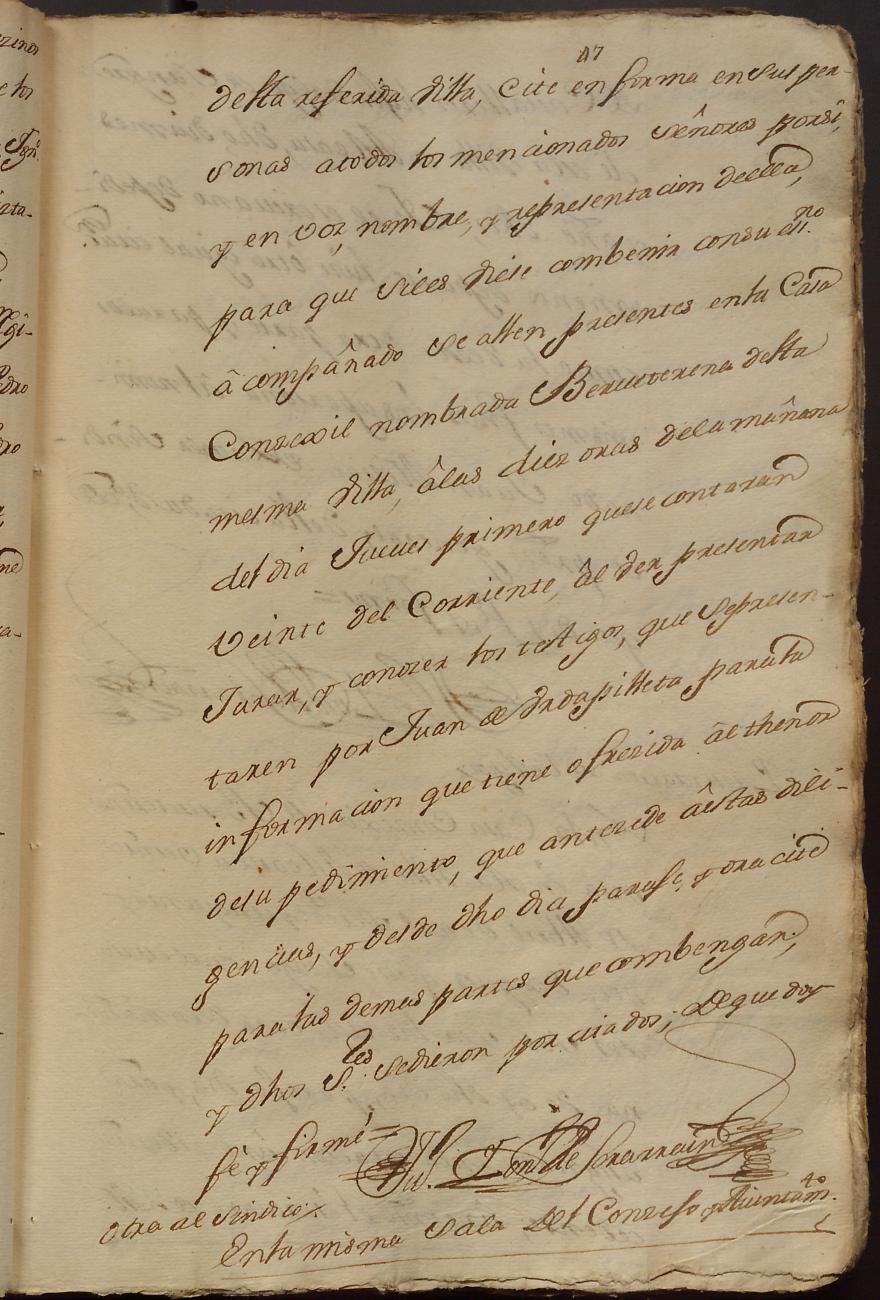 47
desta referida Villa, cite en forma en sus per-
sonas a todos los mencionados Señores por si,
y en voz, nombre, y representacion de ella,
para que si les diese combenir con su ess.no
âcompañado se allen presentes en la Casa
Conzexil nombrada Beruuterena desta
mesma Villa, â las diez oras de la mañana
del dia Jueues primero que se contaran
Veinte del Corriente, âl ver presentar
Jurar, y conozer los testigos, que se presen-
taren por Juan de Urdapilleta para la
informacion que tiene ofrezida âl thenor
de su pedimiento, que antezede â estas dili-
gencias, y desde dho dia para se, y ora cite
para las demas partes que combengan;
y dhos S.res se dieron por citados; de que doy
fe y firmé=
de Lorarrain
Otra al Sindico
En la misma Sala del Conzejo y Aiuntam.to